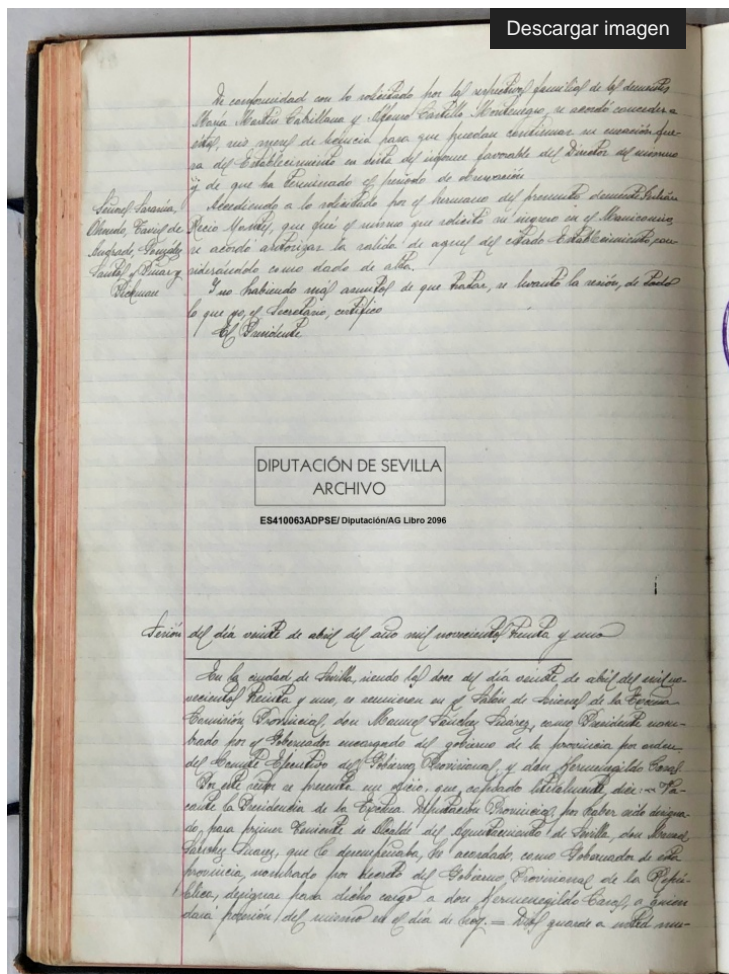 Descargar imagen
De conformidad con lo solicitado por las respectivas familias de los dementes
María Martín Cabrillana y Alfonso Castillo Montenegro, se acordó conceder a
estos, seis meses de licencia para que puedan continuar su curación fue-
ra del Establecimiento en vista del informe favorable del Director del mismo
y de que ha terminado el período de observación
Accediendo a lo solicitado por el hermano del presunto demente
Recio Montes, que fué el mismo que solicitó su ingreso en el Manicomio
se acordó autorizar la salida de aquel del citado Establecimiento, con-
siderándolo como dado de alta.
Y no habiendo más asuntos de que tratar, se levantó la sesión, de todo
lo que yo, el Secretario, certifico
El Presidente
Señores Sarasúa,
Olmedo,
Andrade, González
Santos y
DIPUTACIÓN DE SEVILLA
ARCHIVO
ES410063ADPSE/ Diputación/AG Libro 2096
Sesión del día veinte de abril del año mil novecientos treinta y uno
En la ciudad de Sevilla, siendo las doce del día veinte de abril del mil no-
vecientos treinta y uno, se reunieron en el Salón de Sesiones de la Excma
Comisión Provincial, don Manuel Sánchez Suárez, como Presidente nom-
brado por el Gobernador encargado del gobierno de la provincia por orden
del Comité Ejecutivo del Gobierno Provisional, y don Hermenegildo Casas.
Por este señor se presenta un oficio, que, copiado literalmente, dice: = Va-
cante la Presidencia de la Excma Diputación Provincial, por haber sido designa-
do para primer Teniente de Alcalde del Ayuntamiento de Sevilla, don Manuel
Sánchez Suarez, que la desempeñaba, he acordado, como Gobernador de esta
provincia, nombrado por decreto del Gobierno Provisional de la Repú-
blica, designar para dicho cargo a don Hermenegildo Casas, a quien
dará posesión del mismo en el día de hoy. = Dios guarde a usted mu-